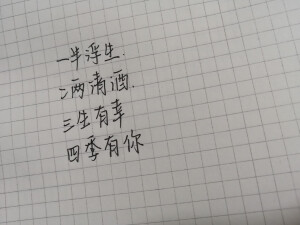 一半浮生.
二两清酒.
三生有幸
四季有你